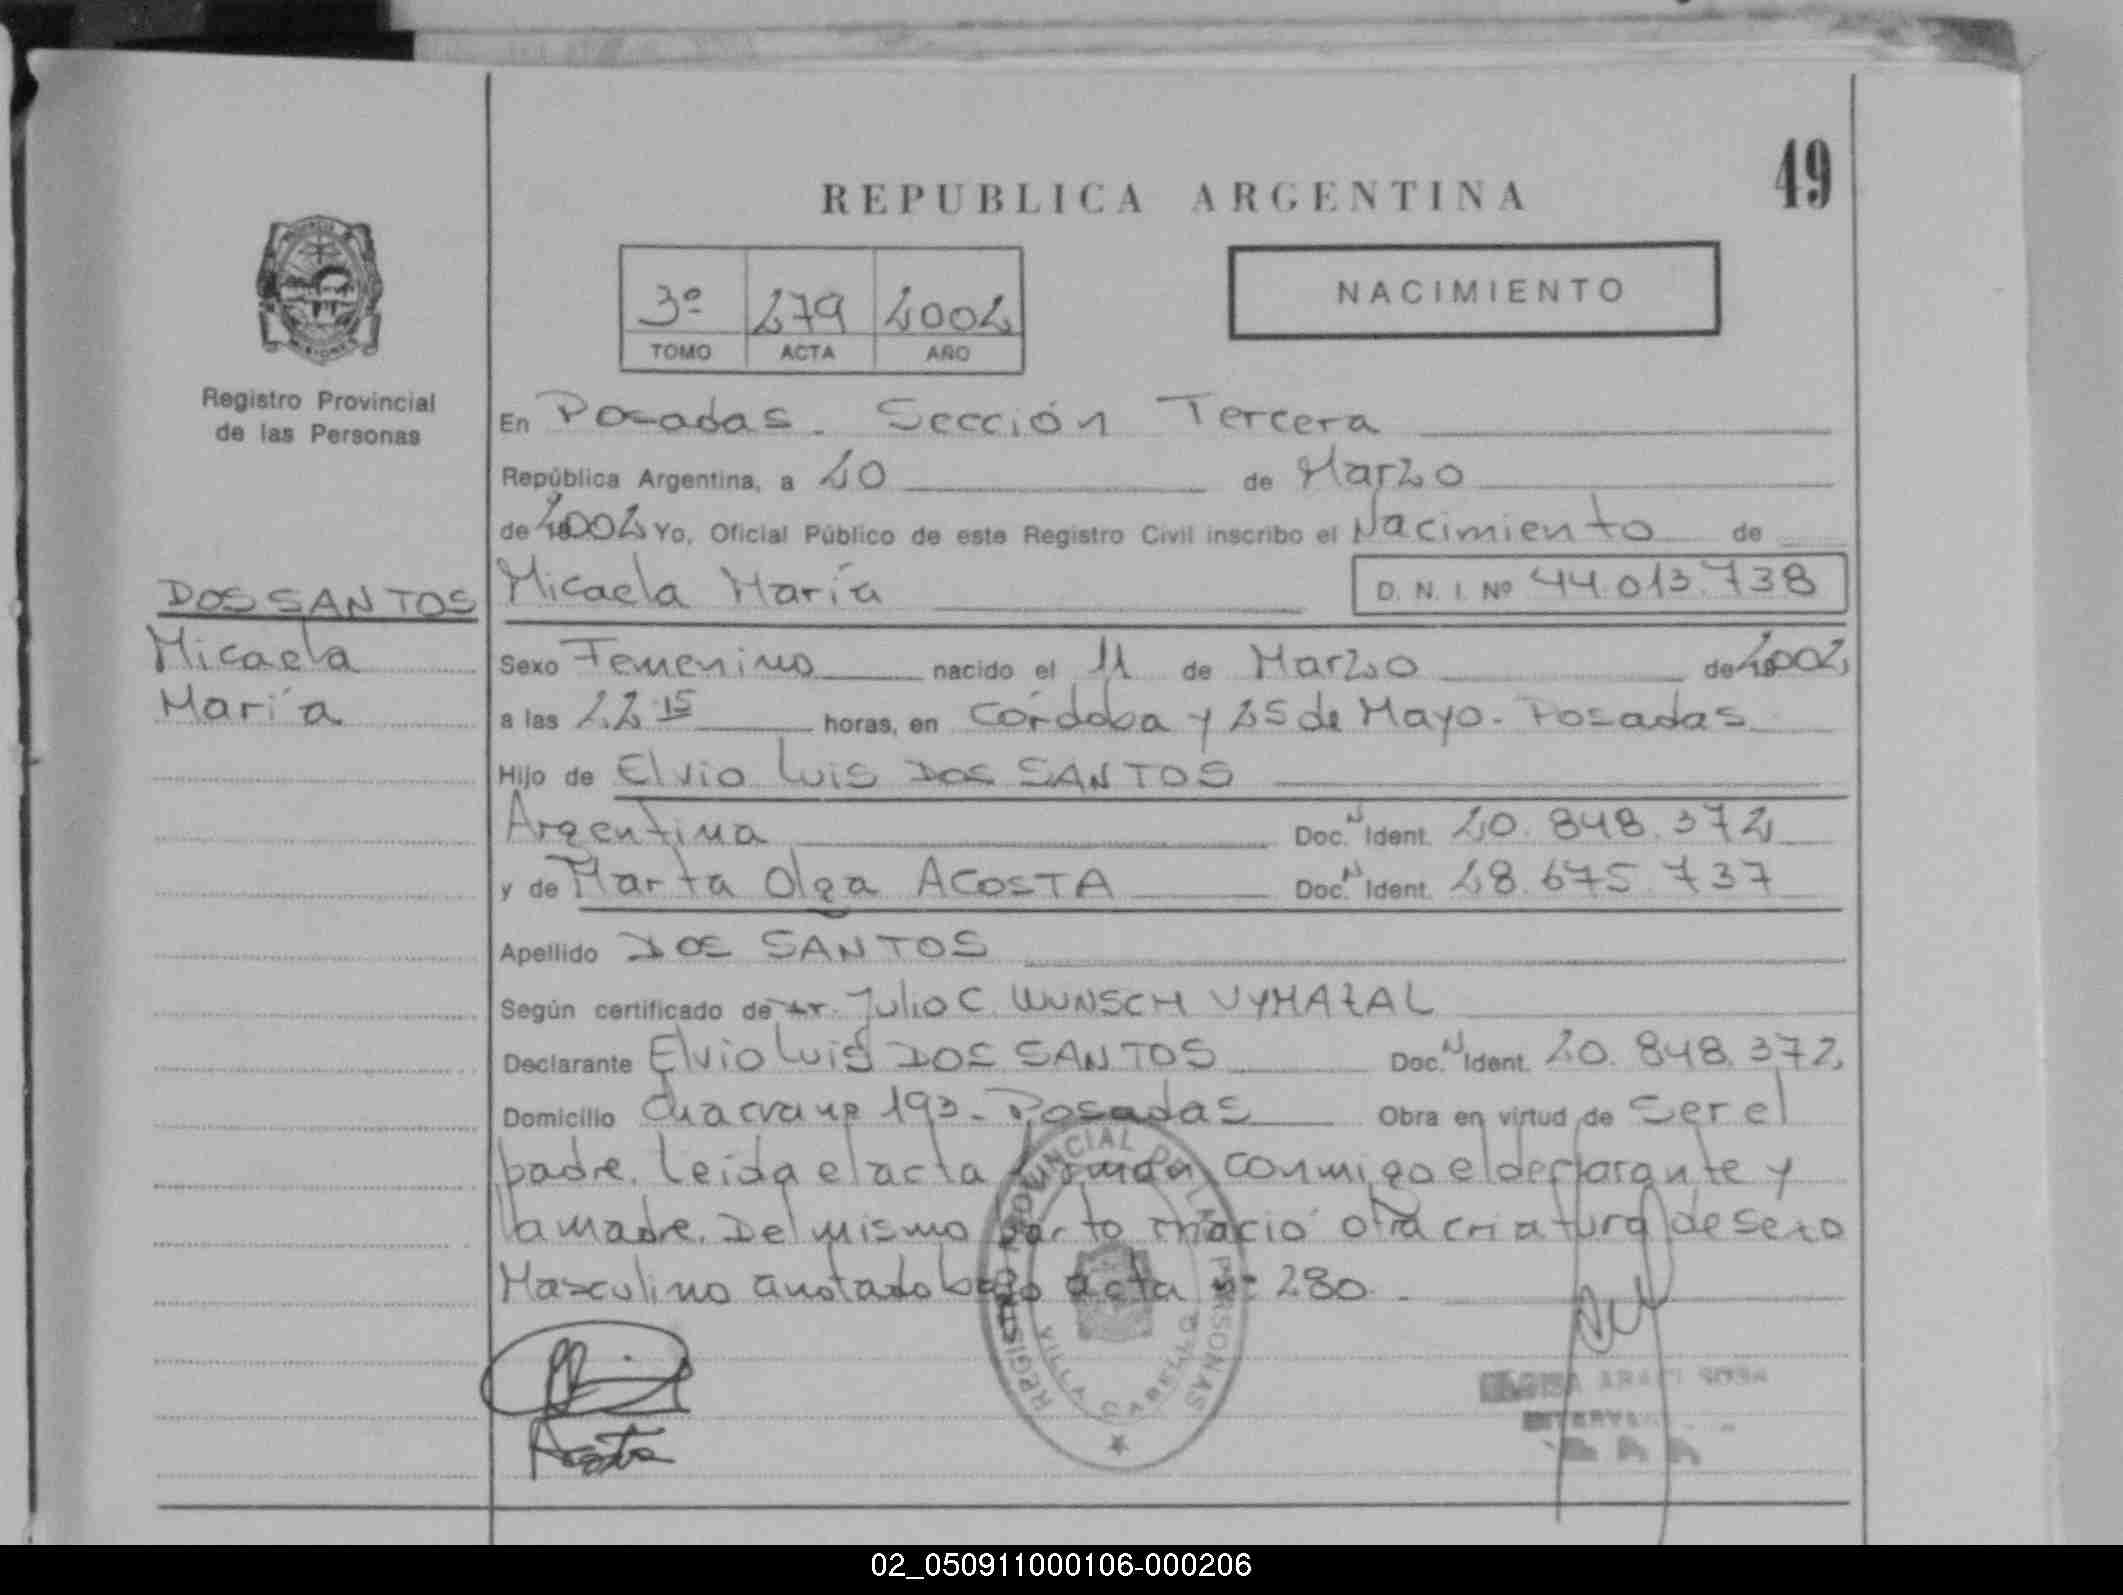 49
REPUBLICA ARGENTINA
NACIMIENTO
3º 279 2002
TOMO ACTA AÑO
Registro Provincial
de las Personas
En Posadas. Sección Tercera
República Argentina, a 20 de Marzo
de 2002 Yo, Oficial Público de este Registro Civil inscribo el Nacimiento de
DOS SANTOS
Micaela
María
Micaela María D. N. I. Nº 44.013.738
Sexo Femenino nacido el 11 de Marzo de 2002
a las 22 15 horas, en Córdoba y 25 de Mayo. Posadas
Hijo de Elvio Luis DOS SANTOS
Argentina Doc. N Ident. 20.848.372
y de Marta Olga ACOSTA Doc. N Ident. 28.675.737
Apellido DOS SANTOS
Según certificado de Dr. Julio C. WUNSCH VYMAZAL
Declarante Elvio Luis DOS SANTOS Doc. N Ident. 20.848.372
Domicilio 193 - Posadas Obra en virtud de ser el
padre. Leida el acta firman conmigo el declarante y
la madre. Del mismo parto nació otra criatura de sexo
Masculino anotado bajo acta nº 280.
REGISTRO PROVINCIAL DE LAS PERSONAS
VILLA CABELLO
Acosta
ARACI SOSA
02_050911000106-000206